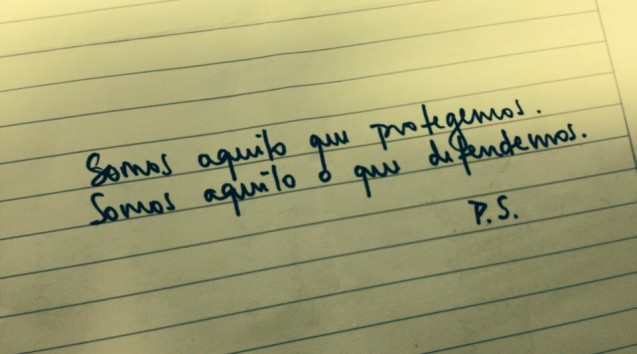 Somos aquilo que protegemos.
Somos aquilo o que defendemos.
P.S.